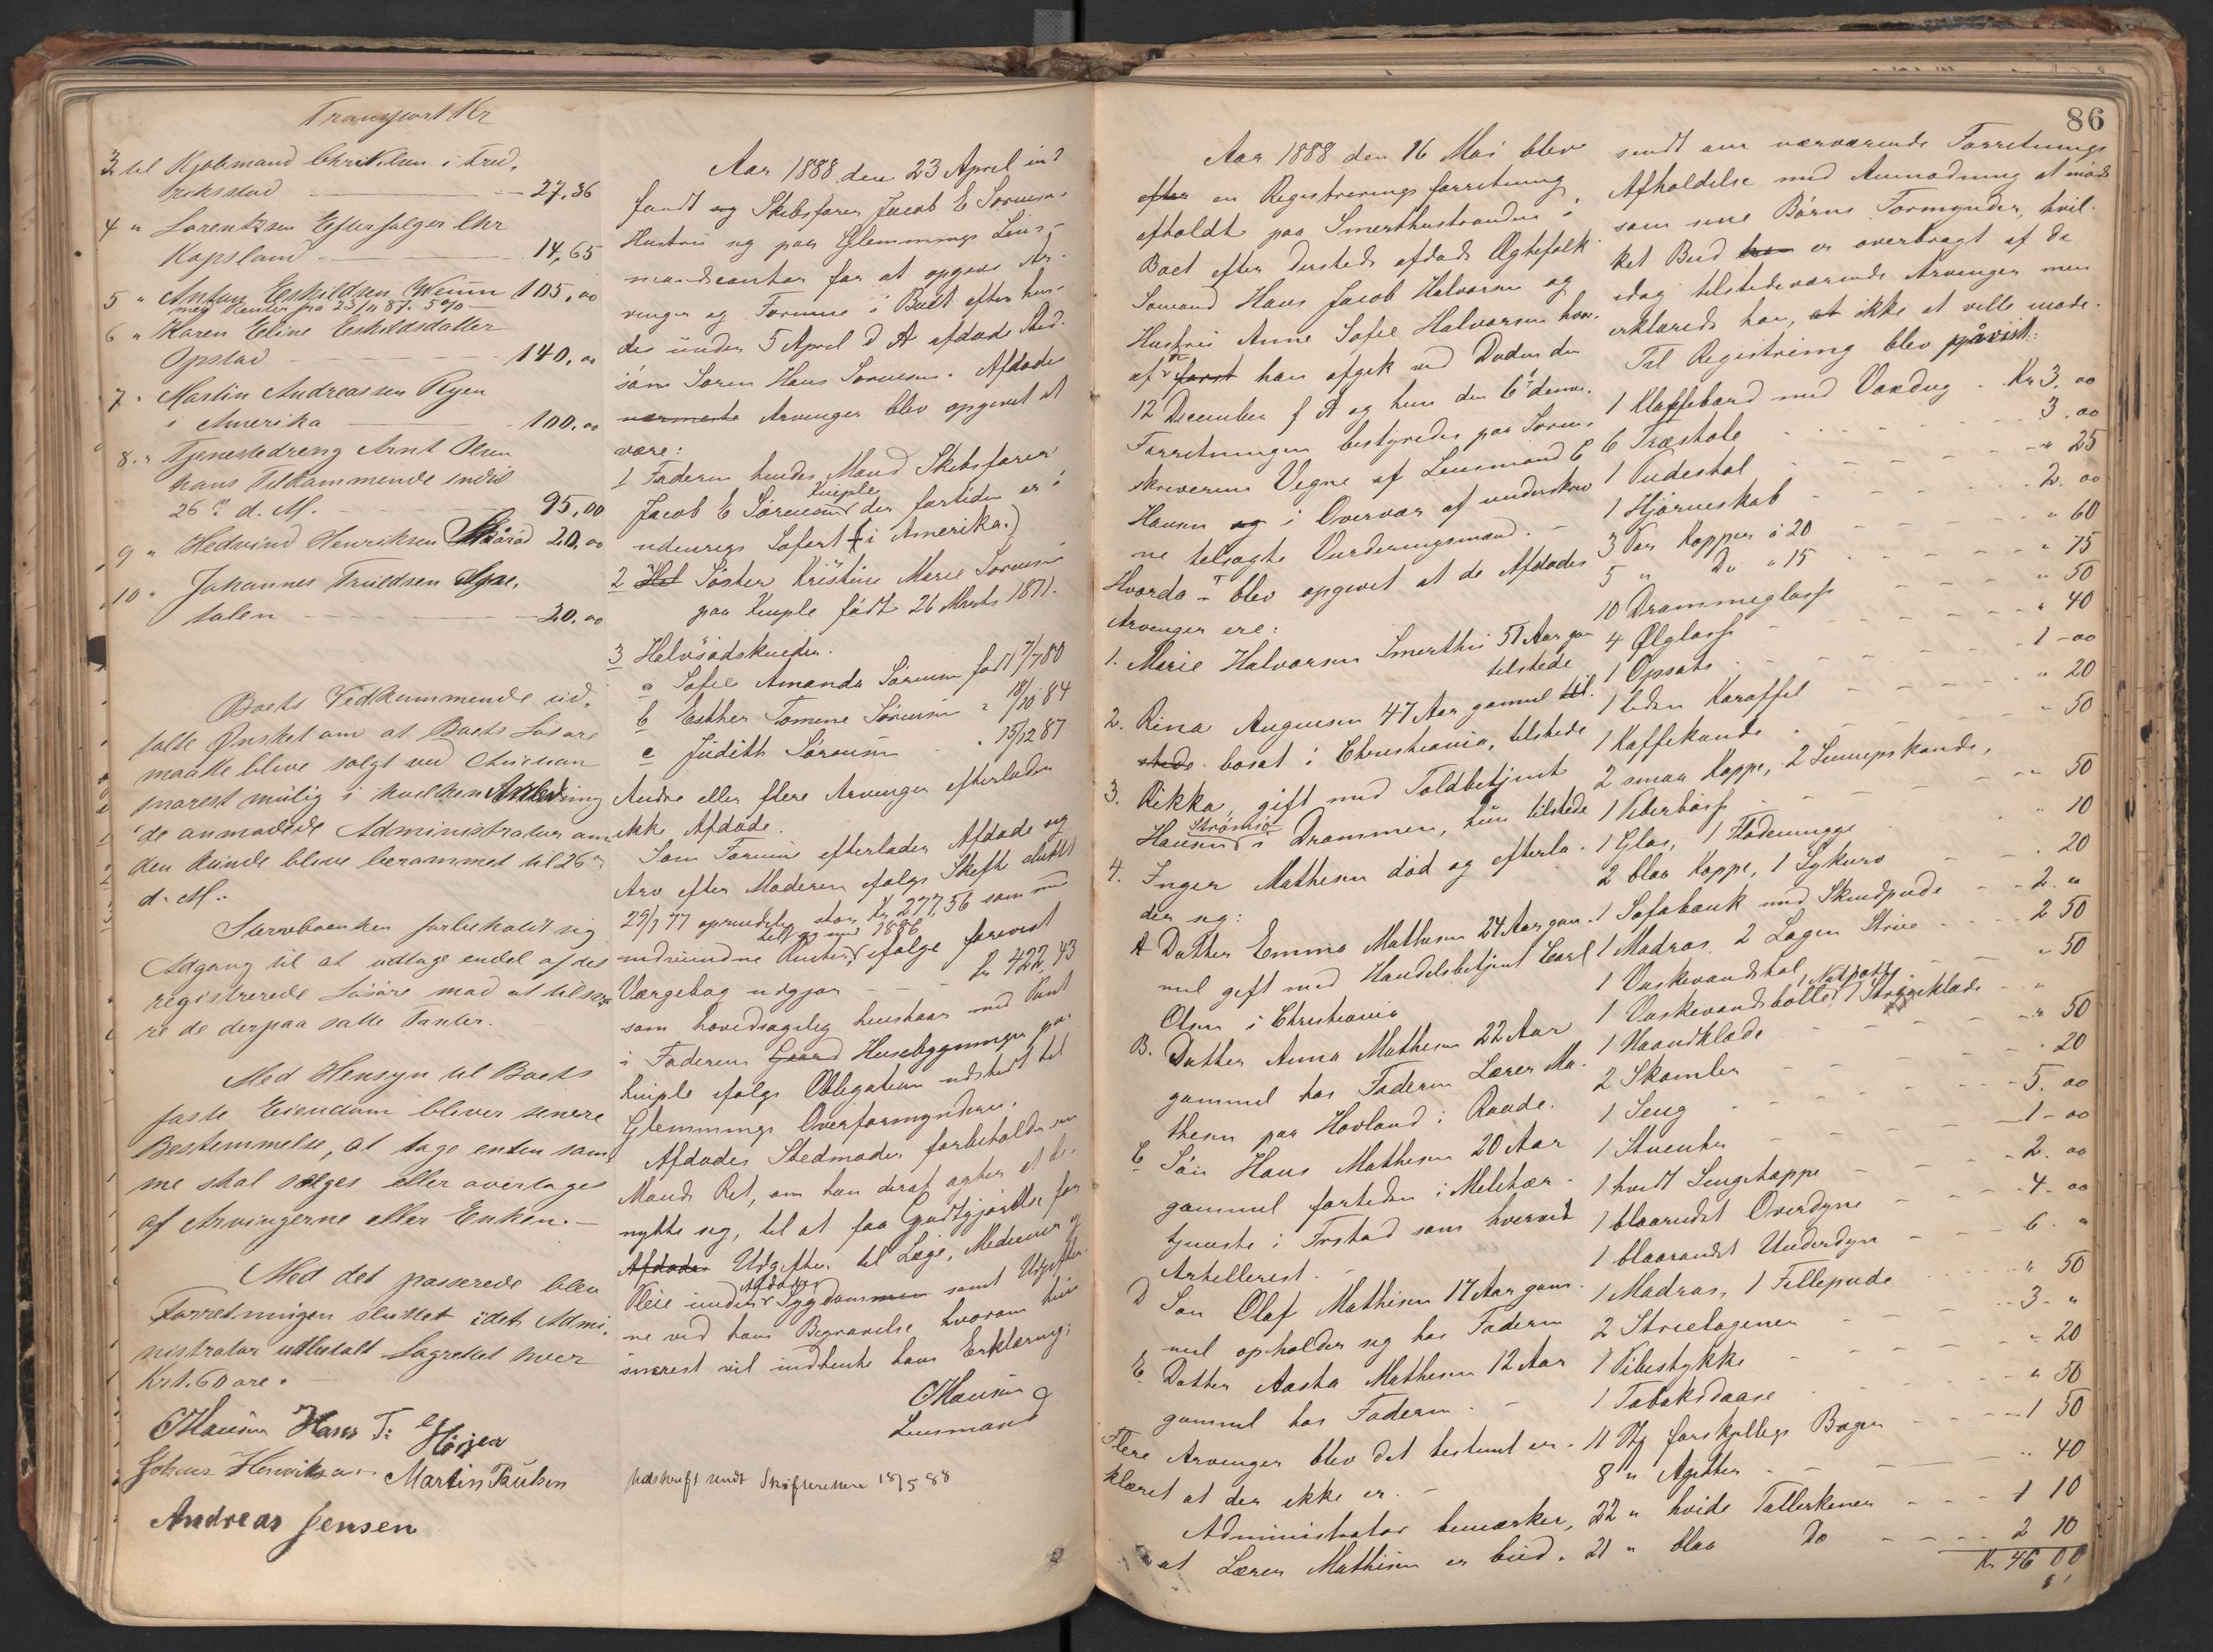 Transport Kr
3 til Kjøbmand Chrikilsen i Fred,
riksstad 27,36
4 " Lorentzen Efterfølger Chr
Kapsland 14,65
5 " Anton Eskildsen Weum 105,00
med Renter fra 23/11 87. 5%
6 " Karen Eline Eskildsdatter
Opstad 140,00
7 " Martin Andreassen Ryen
i Amerika 100,00
8 " Tjenestedreng Arnt Olsen
hans Tilkommende indtil
26de d. M. 95,00
9 " Hedvind Henriksen Skaarød 20,00
10 " Johannes Truldsen
talen 20,00
Boets Vedkommende ud,
talte Ønsket om at Boets Løsøre
maatte blive solgt ved Auktion
snarest mulig i hvilken Anledning
de anmodede Administrator om
den kunde blive berammet til 26de
d. M.
Størvboenken forbeholdt sig
Adgang til at udtage endel af det
registrerede Løsøre mod at tilsva-
re de derpaa satte Taxter.
Med Hensyn til Boets
faste Eiendom bliver senere
Bestemmelse, at tage enten sam
me skal sælges eller overtages
af Arvingerne eller Enken.
Med det passerede blev
Forretningen sluttet idet Admi,
nistrator udbetalt Lagrettet hver
Kr 1.60 øre.
CHansen Hans T. Hörjen
Johan Henriksen Martin Paulsen
Andreas Jensen
Aar 1888 den 23 April ind
fandt og Skibsfører Jacob E Sørensens
Hustru sig paa Glemminge Lens-
mandscontor for at opgive Ar-
vinger og Formue i Boet efter hen-
des under 5 April d A afdøde Sted-
søn Søren Hans Sørensen. Afdødes
nærmeste Arvinger blev opgivet at
være:
1 Faderen hendes Mand Skibsfører
Jacob E Sørensen Kniple der fortiden er i
udenrigs Søfart (i Amerika.)
2 Hel Søster Kristine Marie Sørensen
paa Kniple født 26 Marts 1871.
3 Halvsødskende.
a Sofie Amanda Sørensen født 7/7 80
b Esther Tomine Sørensen " 18/10 84
c Judith Sørensen " 15/12 87
Andre eller flere Arvinger efterlader
ikke Afdøde.
Som Formue efterlader Afdøde sig
Arv efter Moderen ifølge Skifte sluttet
29/1 77 oprindelig stor Kr 277,56 som med
indvundne Renter til og med 1886 ifølge forevist
Værgebog udgjør Kr 422,43
som hovedsagelig henstaar med Pant
i Faderens Gaard Husebygninger paa
Kniple ifølge Obligation udstedt til
Glemminge Overformynderi.
Afdødes Stedmoder forbeholder sin
Mands Ret, om han deraf agter at be-
nytte sig, til at faa Godtgjørelse for
Afdødes Udgifter til Læge, Mediciner og
Pleie under Afdødes Sygdommen samt Udgifter-
ne ved hans Begravelse hvorom hun
snarest vil indhente hans Erklæring.
CHansen
Lensmand
Udskrift sendt Skifteretten 18/5 88
86
Aar 1888 den 16 Mai blev
efter en Registreringsforretning
afholdt paa Smerthustranden i
Boet efter dersteds afdøde Ægtefolk
Sømand Hans Jacob Halvorsen og
Hustru Anne Sofie Halvorsen hvor-
af først han afgik ved Døden den
12 December f A og hun den 6te dennes.
Forretningen bestyredes paa Soren-
skriverens Vegne af Lensmand C
Hansen og i Overvær af underskrev
ne tilsagte Vurderingsmænd.
Hvorda blev opgivet at de Afdødes
Arvinger ere:
1. Marie Halvorsen Smerthu 51 Aar gam
tilstede
2. Rina Augensen 47 Aar gammel til.
stede bosat i Christiania, tilstede
3. Rikka, gift med Toldbetjent
Hansen Strømsø i Drammen, hun tilstede
4. Inger Mathisen død og efterla-
der sig:
A Datter Emma Mathisen 24 Aar gam-
mel gift med Handelsbetjent Carl
Olsen i Christiania
B. Datter Anna Mathisen 22 Aar
gammel hos Faderen Lærer Ma-
thisen paa Hovland i Raade.
C Søn Hans Mathisen 20 Aar
gammel fortiden i Militær-
tjeneste i Frstad som hvervet
Artillerist.
D Søn Olaf Mathisen 17 Aar gam-
mel opholder sig hos Faderen
E Datter Aasta Mathisen 12 Aar
gammel hos Faderen.
Flere Arvinger blev det bestemt er-
klæret at der ikke er.
Administrator bemærker,
at Lærer Mathisen er bud-
sendt om nærværende Forretnings
Afholdelse med Anmodning at møde
som sine Børns Formynder, hvil-
ket Bud han er overbragt af de
idag tilstedeværende Arvinger men
erklærede han, at ikke at ville møde.
Til Registrering blev påvist:
1 Klaffebord med Voxdug Kr 3.00
6 Træstole 3.00
1 Pudestol " 25
1 Hjørneskab 2.00
3 Par Kopper à 20 " 60
5 " Do " 15 " 75
10 Drammeglass " 50
4 Ølglass " 40
1 Opsats 1-00
1 liden Karaffel " 20
1 Kaffekande " 50
2 smaa Kopper, 2 Sennepskander,
1 Peberbøss " 50
1 Glas, 1 Flødemugge " 10
2 blaa Kopper, 1 Sykurv " 20
1 Sofabænk med Skindpude 2 "
1 Madras, 2 Lagen Strie 2 50
1 Vaskevandstol " 50
1 Vaskevandsbolle, 1 Natpotte 1 Strygeklæde "
1 Haandklæde " 50
2 Skamler " 20
1 Seng 5.00
1 Stuenhr 1-00
1 hvidt Sengetæppe 2.00
1 blaarudet Overdyne 4.00
1 blaarandet Underdyne 6 "
1 Madras, 1 Fillepude " 50
2 Strielagener 3 "
1 Pibestykke " 20
1 Tobaksdaase " 50
11 Stk forskjellige Bøger 1 50
8 " Apetter 40
22 " hvide Tallerkener 1 10
21 " blaa Do 2 10
Kr 46 00